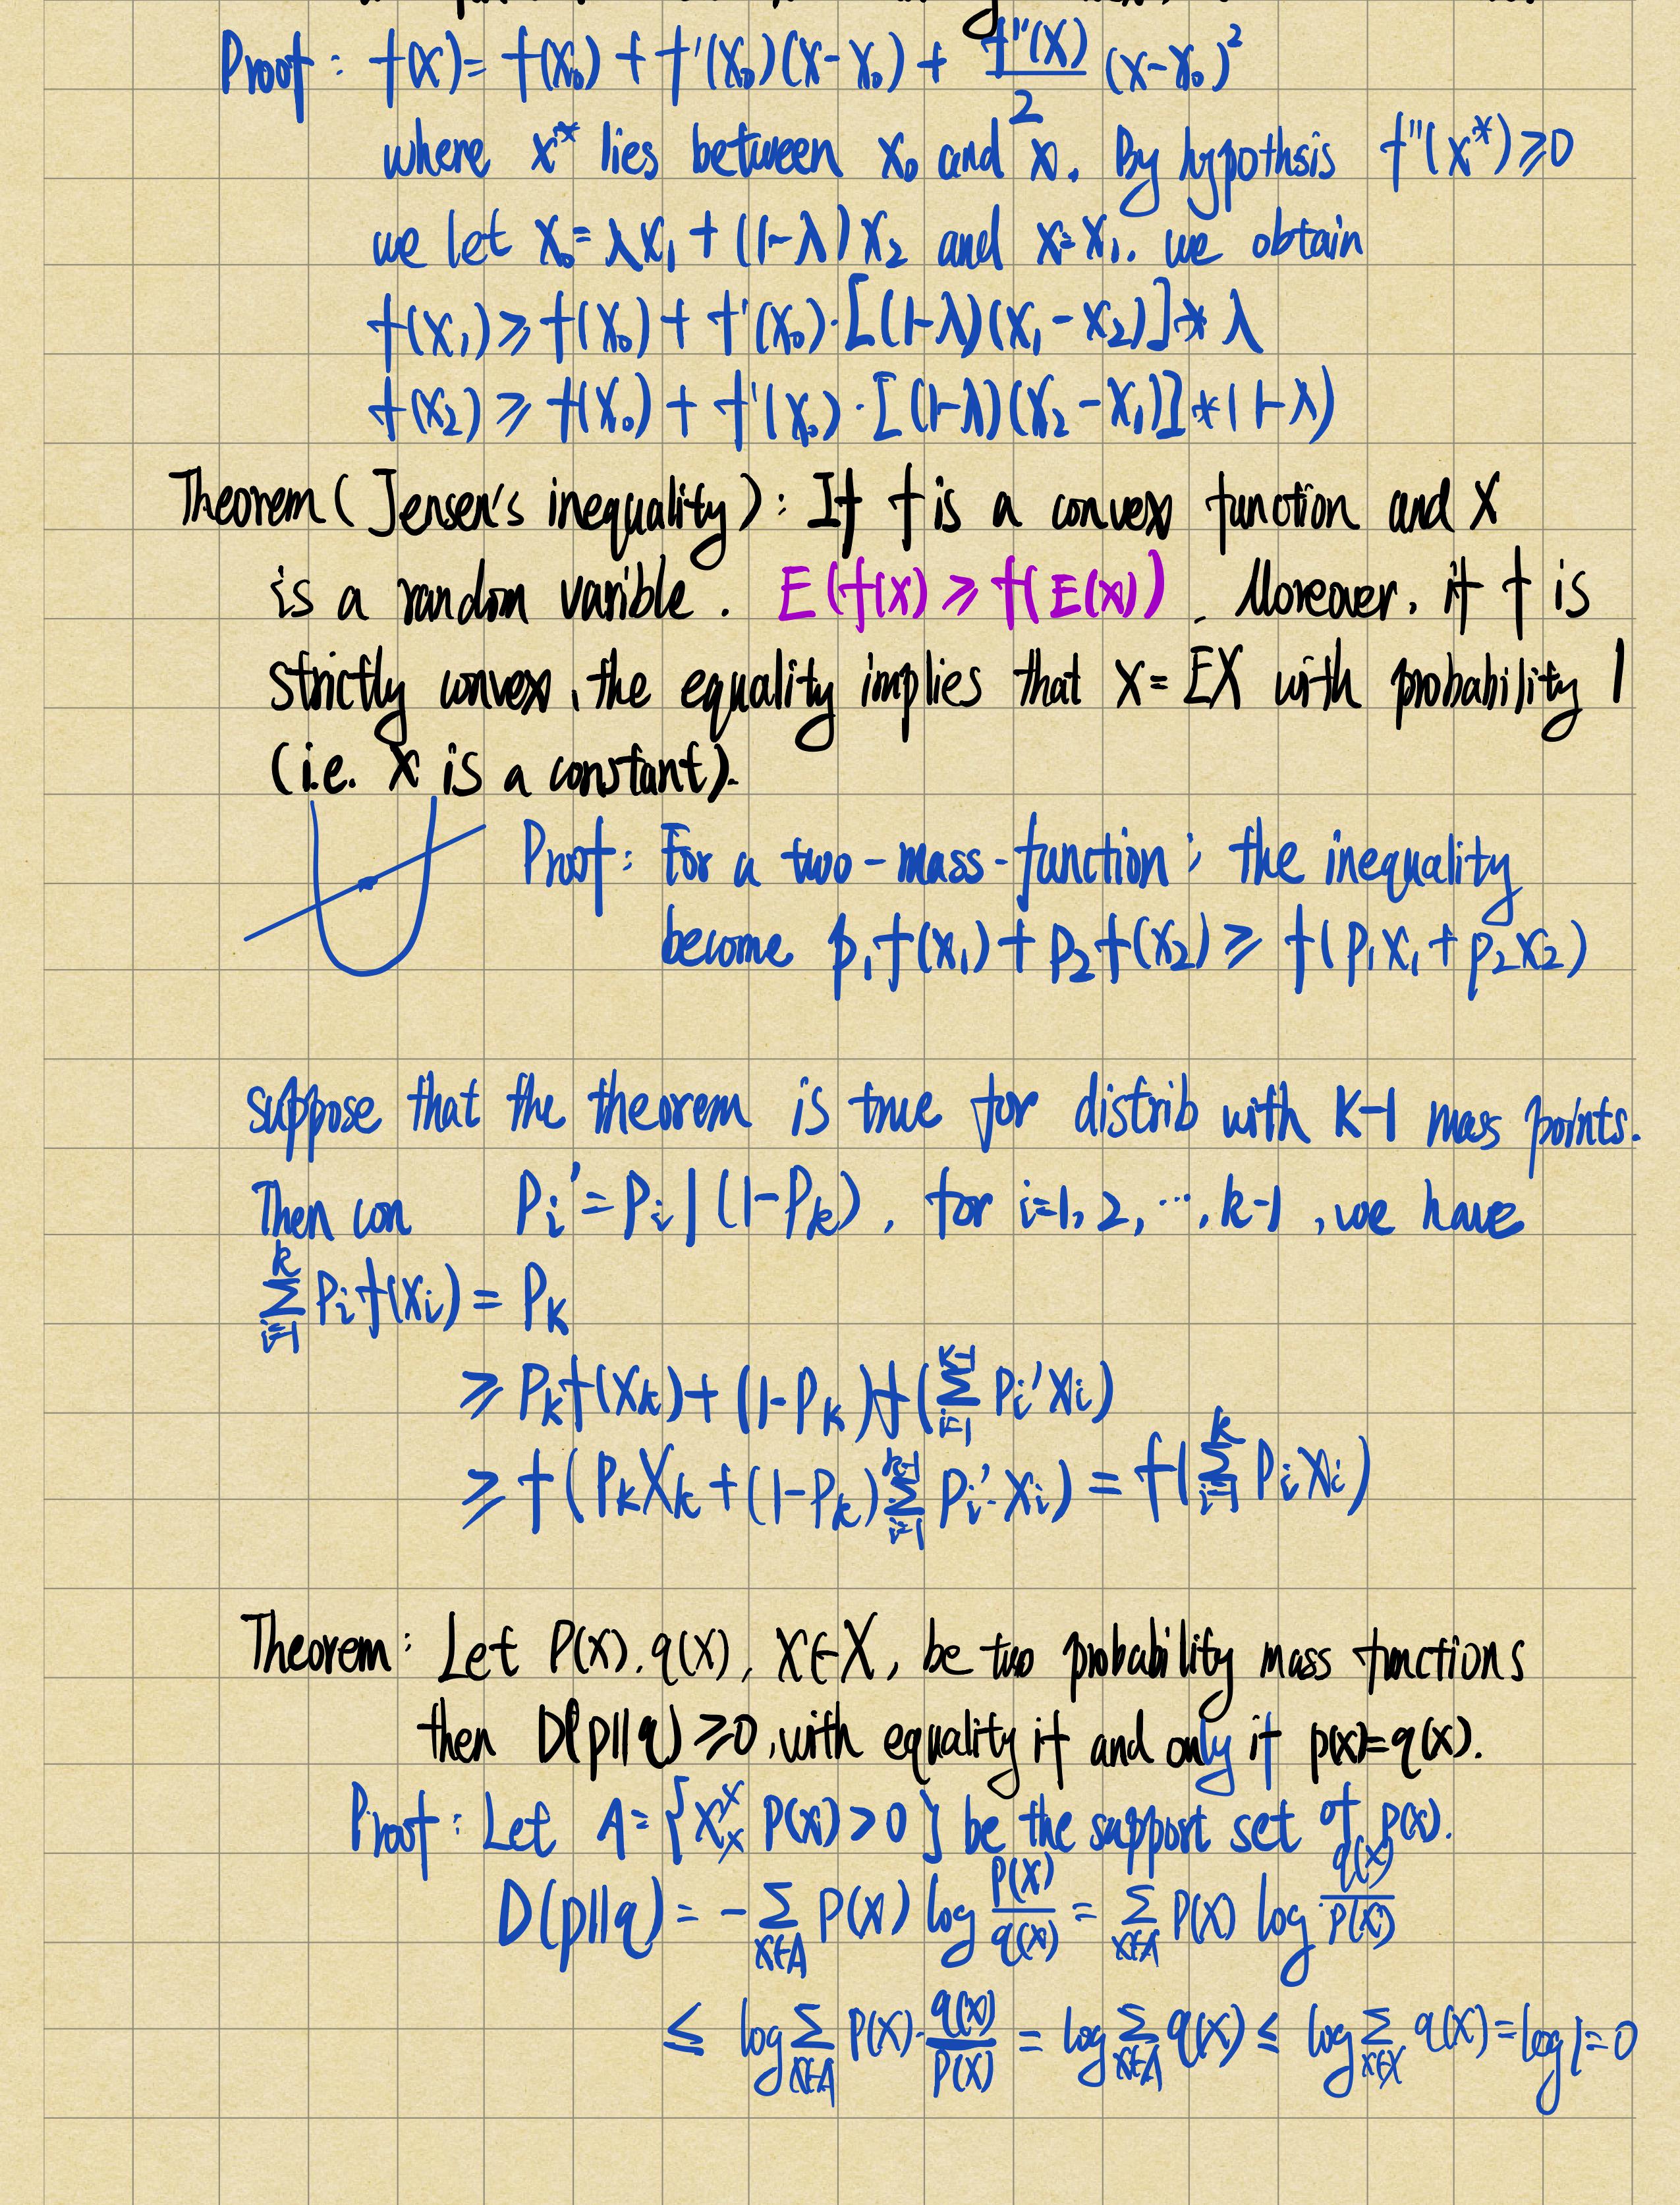 Proof: f(x)= f(x₀) + f'(x₀)(x-x₀) + f''(x)/2 (x-x₀)²
where x* lies between x₀ and x. By hypothsis f''(x*)≥0
we let x₀=λx₁+(1-λ)x₂ and x=x₁. we obtain
f(x₁)≥f(x₀)+f'(x₀)·[(1-λ)(x₁-x₂)]* λ
f(x₂)≥f(x₀)+f'(x₀)·[(1-λ)(x₂-x₁)]*(1-λ)
Theorem(Jensen's inequality): If f is a convex function and X
is a random varible. E(f(x)≥f(E(x)). Moreover, if f is
strictly convex, the equality implies that X=EX with probability 1
(i.e. X is a constant).
Proof: For a two-mass-function; the inequality
become p₁f(x₁)+p₂f(x₂)≥f(p₁x₁+p₂x₂)
suppose that the theorem is true for distrib with K-1 mass points.
Then con Pi'=Pi|(1-Pk), for i=1,2,...,k-1, we have
∑_{i=1}^{k} Pi f(xi) = Pk
≥ Pk f(xk)+(1-Pk)f(∑_{i=1}^{k-1} Pi'xi)
≥ f(PkXk+(1-Pk)∑_{i=1}^{k-1} Pi'·xi) = f(∑_{i=1}^{k} Pi xi)
Theorem: Let P(x).q(x), x∈X, be two probability mass functions
then D(p||q)≥0, with equality if and only if p(x)=q(x).
Proof: Let A={x P(x)>0} be the support set of P(x).
D(p||q)= -∑_{x∈A} P(x) log P(x)/q(x) = ∑_{x∈A} P(x) log q(x)/P(x)
≤ log∑_{x∈A} P(x)·q(x)/P(x) = log∑_{x∈A} q(x) ≤ log∑_{x∈X} q(x)=log1=0